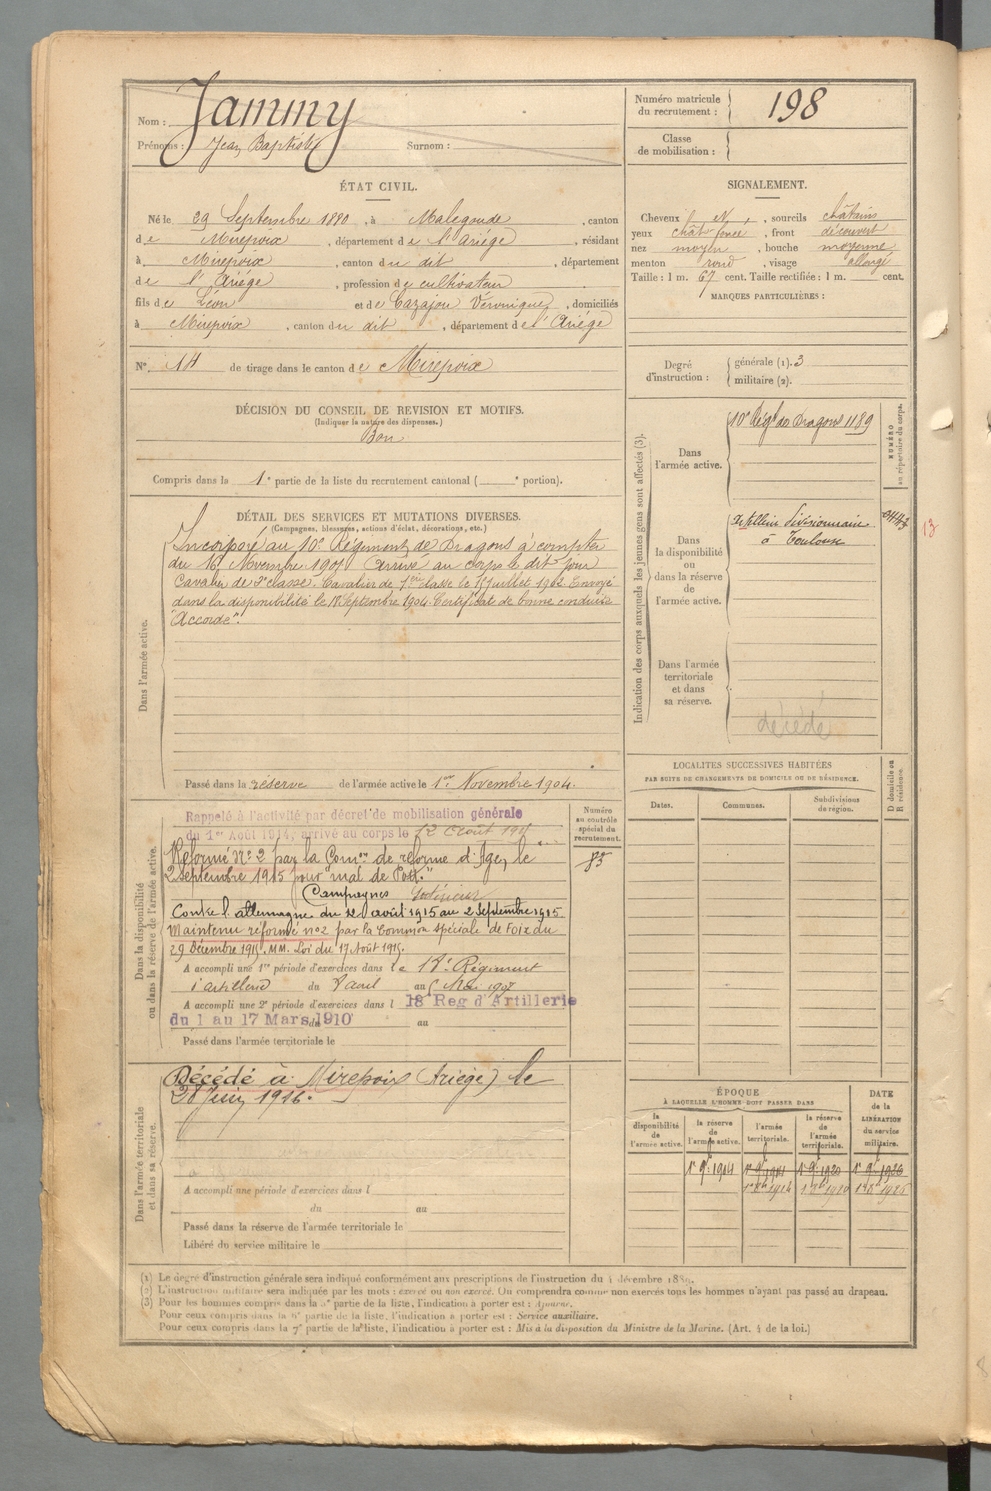 Nom : Jammy
Prénoms : Jean Baptiste Surnom :
Numéro matricule du recrutement : 198
Classe de mobilisation :
ÉTAT CIVIL.
Né le 29 Septembre 1880, à Malegoude, canton
de Mirepoix, département de l'Ariège, résidant
à Mirepoix, canton du dit, département
de l'Ariège, profession de cultivateur
fils de Léon et de Cazajou Véronique, domiciliés
à Mirepoix, canton du dit, département de l'Ariège
N° 14 de tirage dans le canton de Mirepoix
SIGNALEMENT.
Cheveux N, sourcils châtains
yeux chât foncé, front découvert
nez moyen, bouche moyenne
menton rond, visage allongé
Taille : 1 m. 67 cent. Taille rectifiée : 1 m. cent.
MARQUES PARTICULIÈRES :
Degré d'instruction : générale (1). 3
militaire (2).
DÉCISION DU CONSEIL DE REVISION ET MOTIFS.
(Indiquer la nature des dispenses.)
Bon
Compris dans la 1e partie de la liste du recrutement cantonal ( e portion).
DÉTAIL DES SERVICES ET MUTATIONS DIVERSES.
(Campagnes, blessures, actions d'éclat, décorations, etc.)
Dans l'armée active.
Incorporé au 10e Régiment de Dragons à compter
du 16 Novembre 1901 arrivé au corps le dit jour
Cavalier de 2e classe. Cavalier de 1ère classe le 12 Juillet 1902. Envoyé
dans la disponibilité le 18 Septembre 1904. Certificat de bonne conduite
"Accordé".
Passé dans la réserve de l'armée active le 1er Novembre 1904.
Indication des corps auxquels les jeunes gens sont affectés (3).
NUMÉRO au répertoire du corps.
Dans l'armée active.
10e Régt de Dragons 1189
Dans la disponibilité ou dans la réserve de l'armée active.
Artillerie divisionnaire
à Toulouse
13
Dans l'armée territoriale et dans sa réserve.
décédé
LOCALITES SUCCESSIVES HABITÉES
PAR SUITE DE CHANGEMENTS DE DOMICILE OU DE RÉSIDENCE.
Dates.
Communes.
Subdivisions de région.
D domicile ou R résidence.
Dans la disponibilité ou dans la réserve de l'armée active.
Numéro au contrôle spécial du recrutement.
85
Rappelé à l'activité par décret de mobilisation générale
du 1er Août 1914, arrivé au corps le 12 Août 191
Réformé N° 2 par la Comon de réforme d'Agen le
2 septembre 1915 pour "mal de Pott."
Campagnes Intérieur
Contre l'allemagne du 12 août 1915 au 2 Septembre 1915
Maintenu réformé n°2 par la Commion spéciale de Foix du
29 Décembre 1915. MM. Loi du 17 Août 1915.
A accompli une 1re période d'exercices dans le 18e Régiment
d'artillerie du 8 avril au 5 Mai 1907
A accompli une 2e période d'exercices dans l 18 Reg d'Artillerie
du 1 au 17 Mars 1910 du au
Passé dans l'armée territoriale le
Dans l'armée territoriale et dans sa réserve.
Décédé à Mirepoix (Ariège) le
28 Juin 1916.
A accompli une période d'exercices dans l
du au
Passé dans la réserve de l'armée territoriale le
Libéré du service militaire le
ÉPOQUE
À LAQUELLE L'HOMME DOIT PASSER DANS
la disponibilité de l'armée active.
la réserve de l'armée active.
l'armée territoriale.
la réserve de l'armée territoriale.
DATE de la LIBÉRATION du service militaire.
1er 9bre 1904
1er 8bre 1914
(1) Le degré d'instruction générale sera indiqué conformément aux prescriptions de l'instruction du 4 décembre 1889.
(2) L'instruction militaire sera indiquée par les mots : exercé ou non exercé. On comprendra comme non exercés tous les hommes n'ayant pas passé au drapeau.
(3) Pour les hommes compris dans la 5e partie de la liste, l'indication à porter est : Ajourné.
Pour ceux compris dans la 6e partie de la liste, l'indication à porter est : Service auxiliaire.
Pour ceux compris dans la 7e partie de la liste, l'indication à porter est : Mis à la disposition du Ministre de la Marine. (Art. 4 de la loi.)